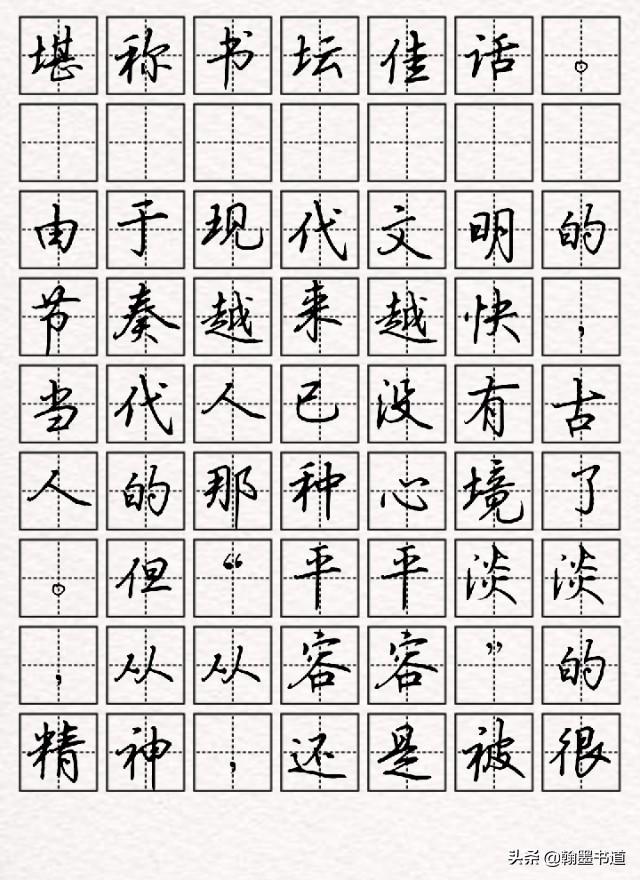 堪称书坛佳话。
由于现代文明的
节奏越来越快，
当代人已没有古
人的那种心境了
。但“平平淡淡
，从从容容”的
精神，还是被很
头条 @翰墨书道